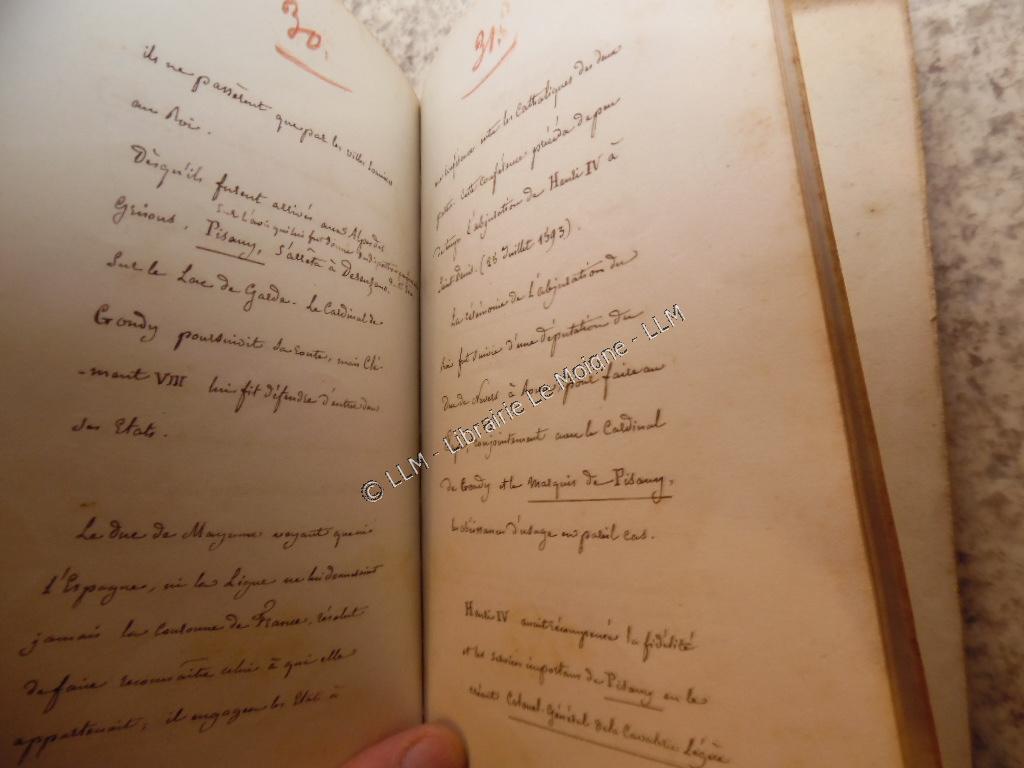 30.
ils ne passèrent que par les villes soumises
au Roi.
Dès qu'ils furent arrivés aux Alpes des
Sur l'avis qui lui fut donné
Grisons, Pisany, s'arrêta à Desenzano
sur le Lac de Garde. Le Cardinal de
Gondy poursuivit sa route, mais Clé-
-ment VIII lui fit défendre d'entrer dans
ses Etats.
Le Duc de Mayenne voyant que ni
l'Espagne, ni la Ligue ne lui donneroient
jamais la Couronne de France, résolut
de faire reconnaître celui à qui elle
appartenait; il engagea les Etats à
31.
une conférence entre les Catholiques des deux
partis. Cette conférence précéda de peu
de temps l'abjuration de Henri IV à
Saint Denis. (25 Juillet 1593).
La cérémonie de l'abjuration du
Roi fut suivie d'une députation du
Duc de Nevers à Rome, pour faire au
conjointement avec le Cardinal
de Gondy et le Marquis de Pisany,
les obéissances d'usage en pareil cas.
Henri IV avait récompensé la fidélité
et les services importans de Pisany en le
créant Colonel-Général de la Cavalerie Légère
© LLM - Librairie Le Moigne - LLM